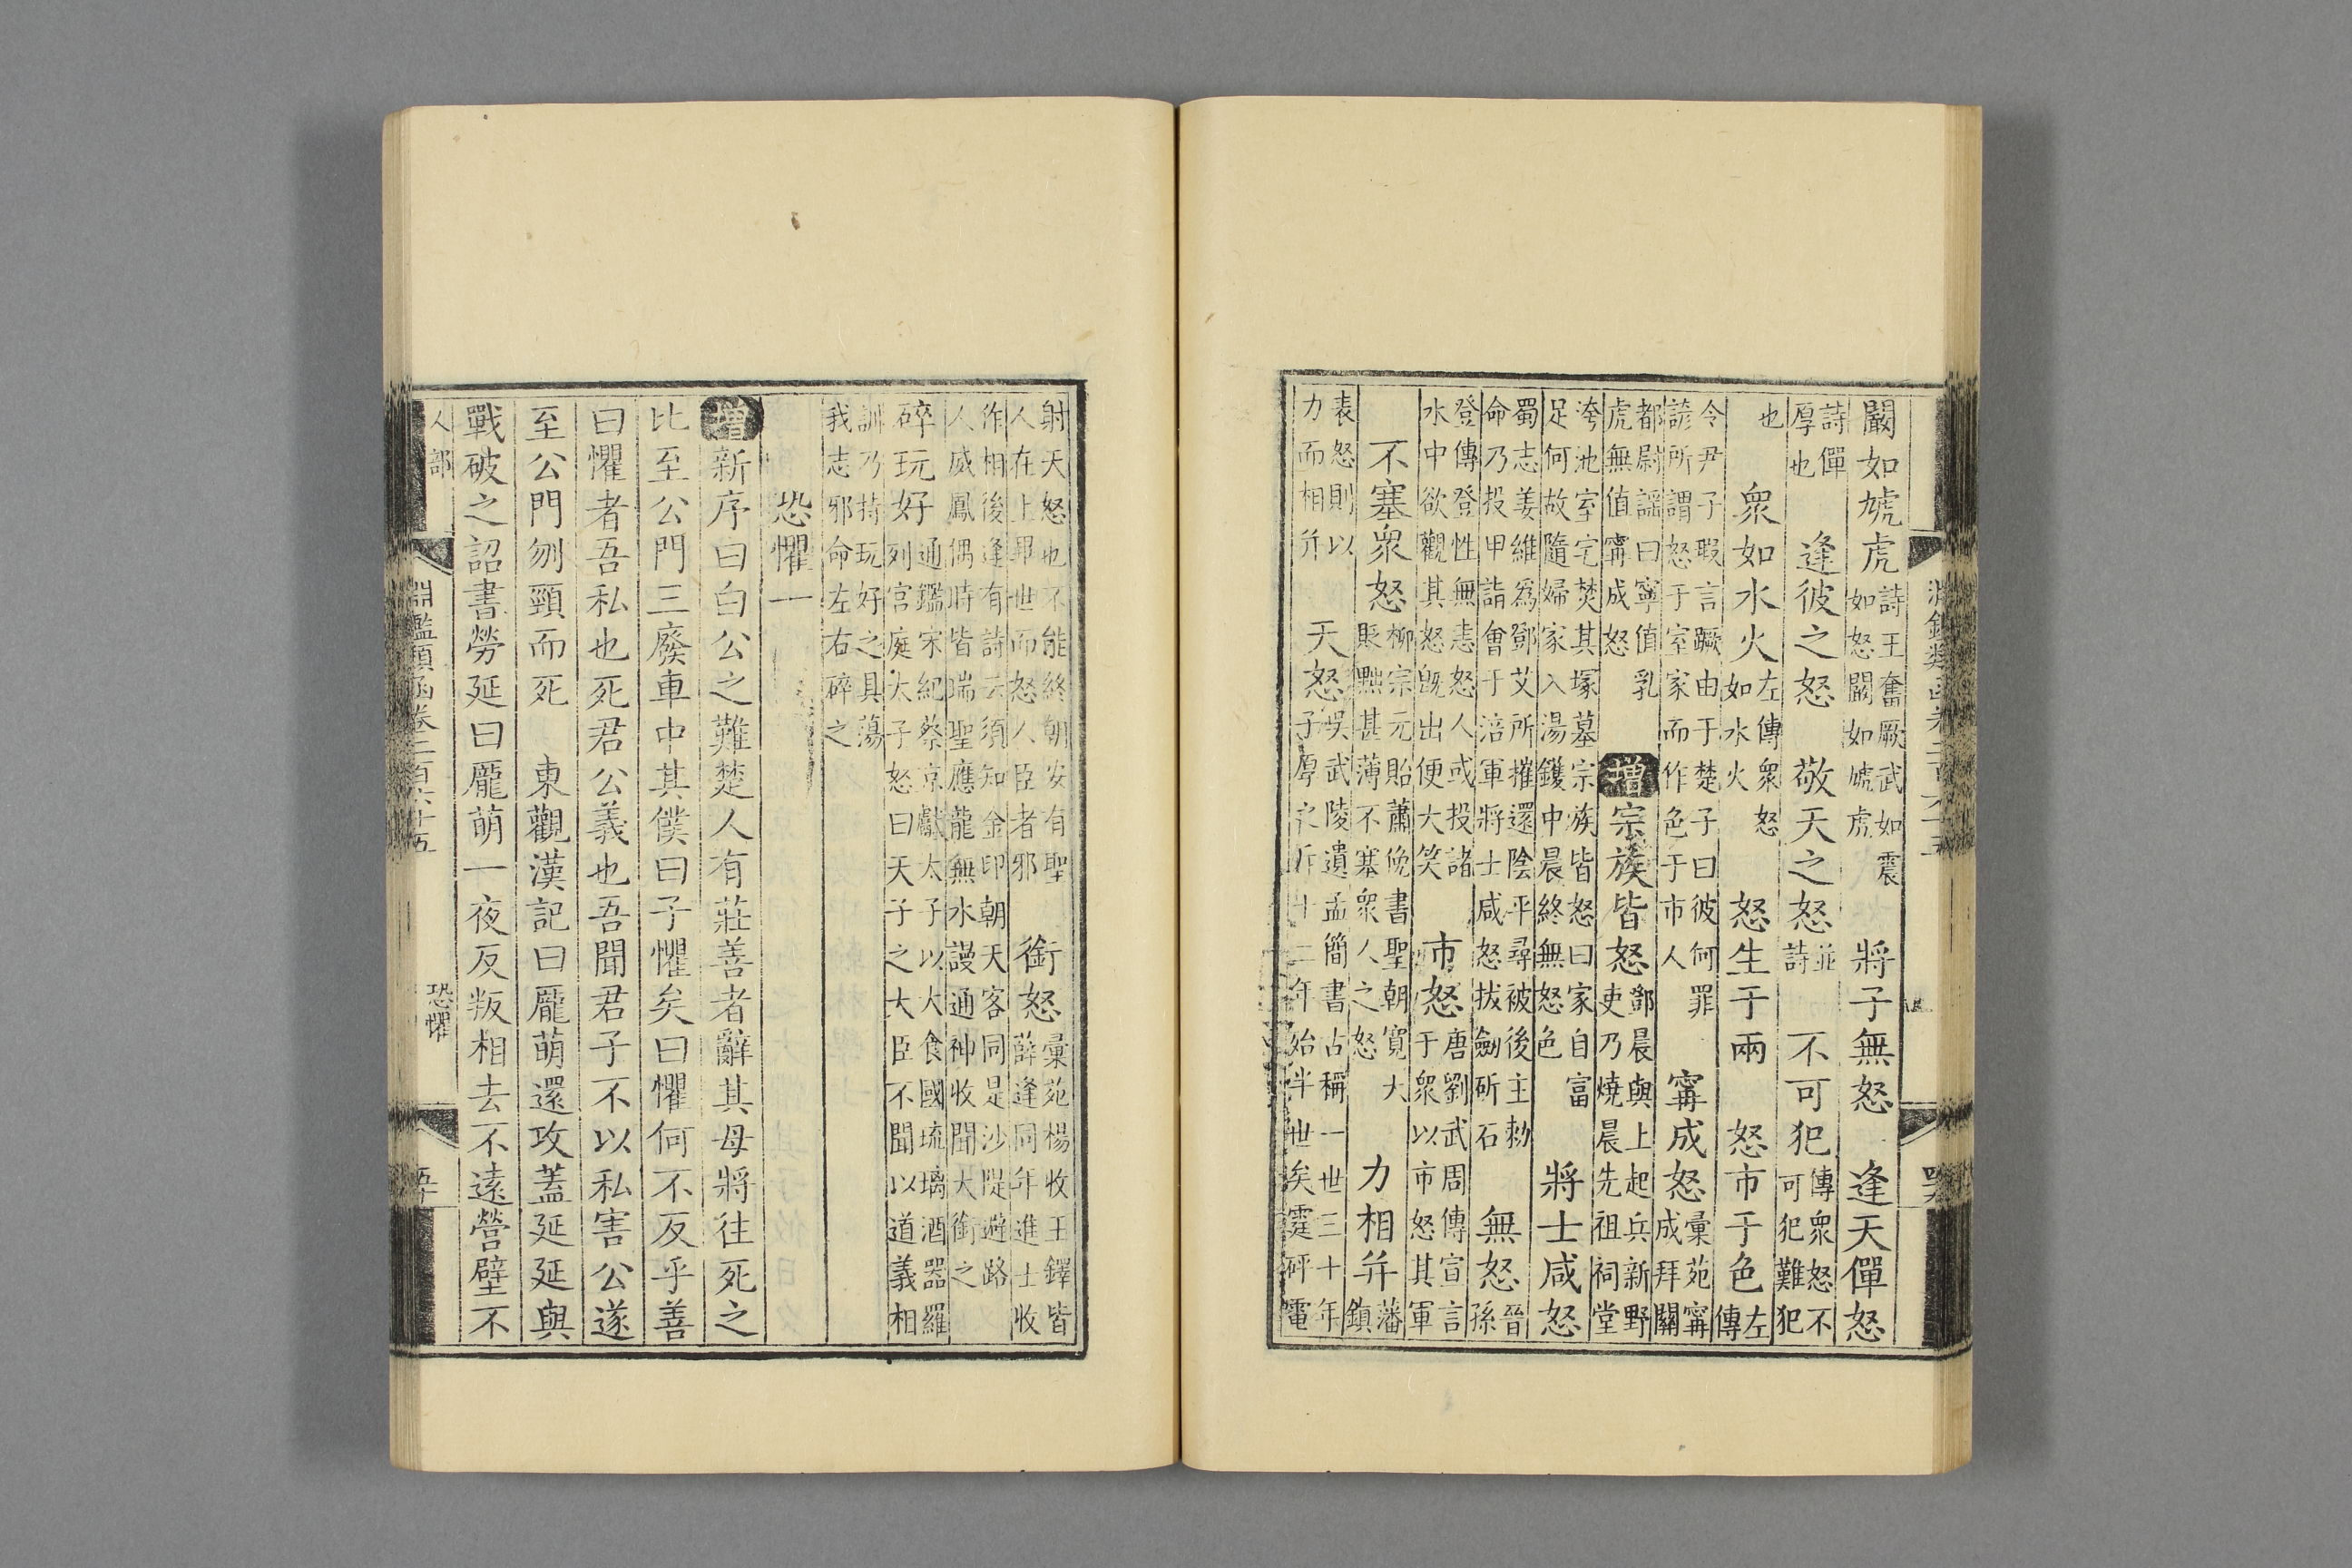 闞如虓虎詩王奮厥武如震如怒闞如虓虎 將子無怒 逢天僤怒
詩僤厚也 逢彼之怒 敬天之怒並詩 不可犯傳衆怒不可犯難犯
也 衆如水火左傳衆怒如水火 怒生于兩 怒市于色左傳
令尹子瑕言蹶由于楚子曰彼何罪諺所謂怒于室家而作色于市人 寗成怒彙苑寗成拜關
都尉謡曰寧值乳虎無值寗成怒 增宗族皆怒鄧晨與上起兵新野吏乃燒晨先祖祠堂
洿池室宅焚其塚墓宗族皆怒曰家自富足何故隨婦家入湯鑊中晨終無怒色 將士咸怒
蜀志姜維爲鄧艾所摧還陰平尋被後主勅命乃投甲詣會于涪軍將士咸怒拔劒斫石 無怒晉孫
登傳登性無恚怒人或投諸水中欲觀其怒旣出便大笑 市怒唐劉武周傳宣言于衆以市怒其軍
不塞衆怒柳宗元貽蕭俛書聖朝寛大貶黜甚薄不塞衆人之怒 力相弁藩鎮
表怒則以力而相弁 天怒吳武陵遺孟簡書古稱一世三十年子厚之斥十二年始半世矣霆砰電
射天怒也不能終朝安有聖人在上畢世而怒人臣者邪 銜怒彙苑楊收王鐸皆薛逢同年進士收
作相後逢有詩云須知金印朝天客同是沙隄避路人威鳳偶時皆瑞聖應龍無水謾通神收聞大銜之
碎玩好通鑑宋紀蔡京獻太子以大食國琉璃酒器羅列宮庭太子怒曰天子之大臣不聞以道義相
訓乃持玩好之具蕩我志邪命左右碎之
恐懼一
增新序曰白公之難楚人有莊善者辭其母將往死之
比至公門三廢車中其僕曰子懼矣曰懼何不反乎善
曰懼者吾私也死君公義也吾聞君子不以私害公遂
至公門刎頸而死 東觀漢記曰龐萌還攻蓋延延與
戰破之詔書勞延曰龐萌一夜反叛相去不遠營壁不
人部 淵鑑類函卷二百六十五 恐懼